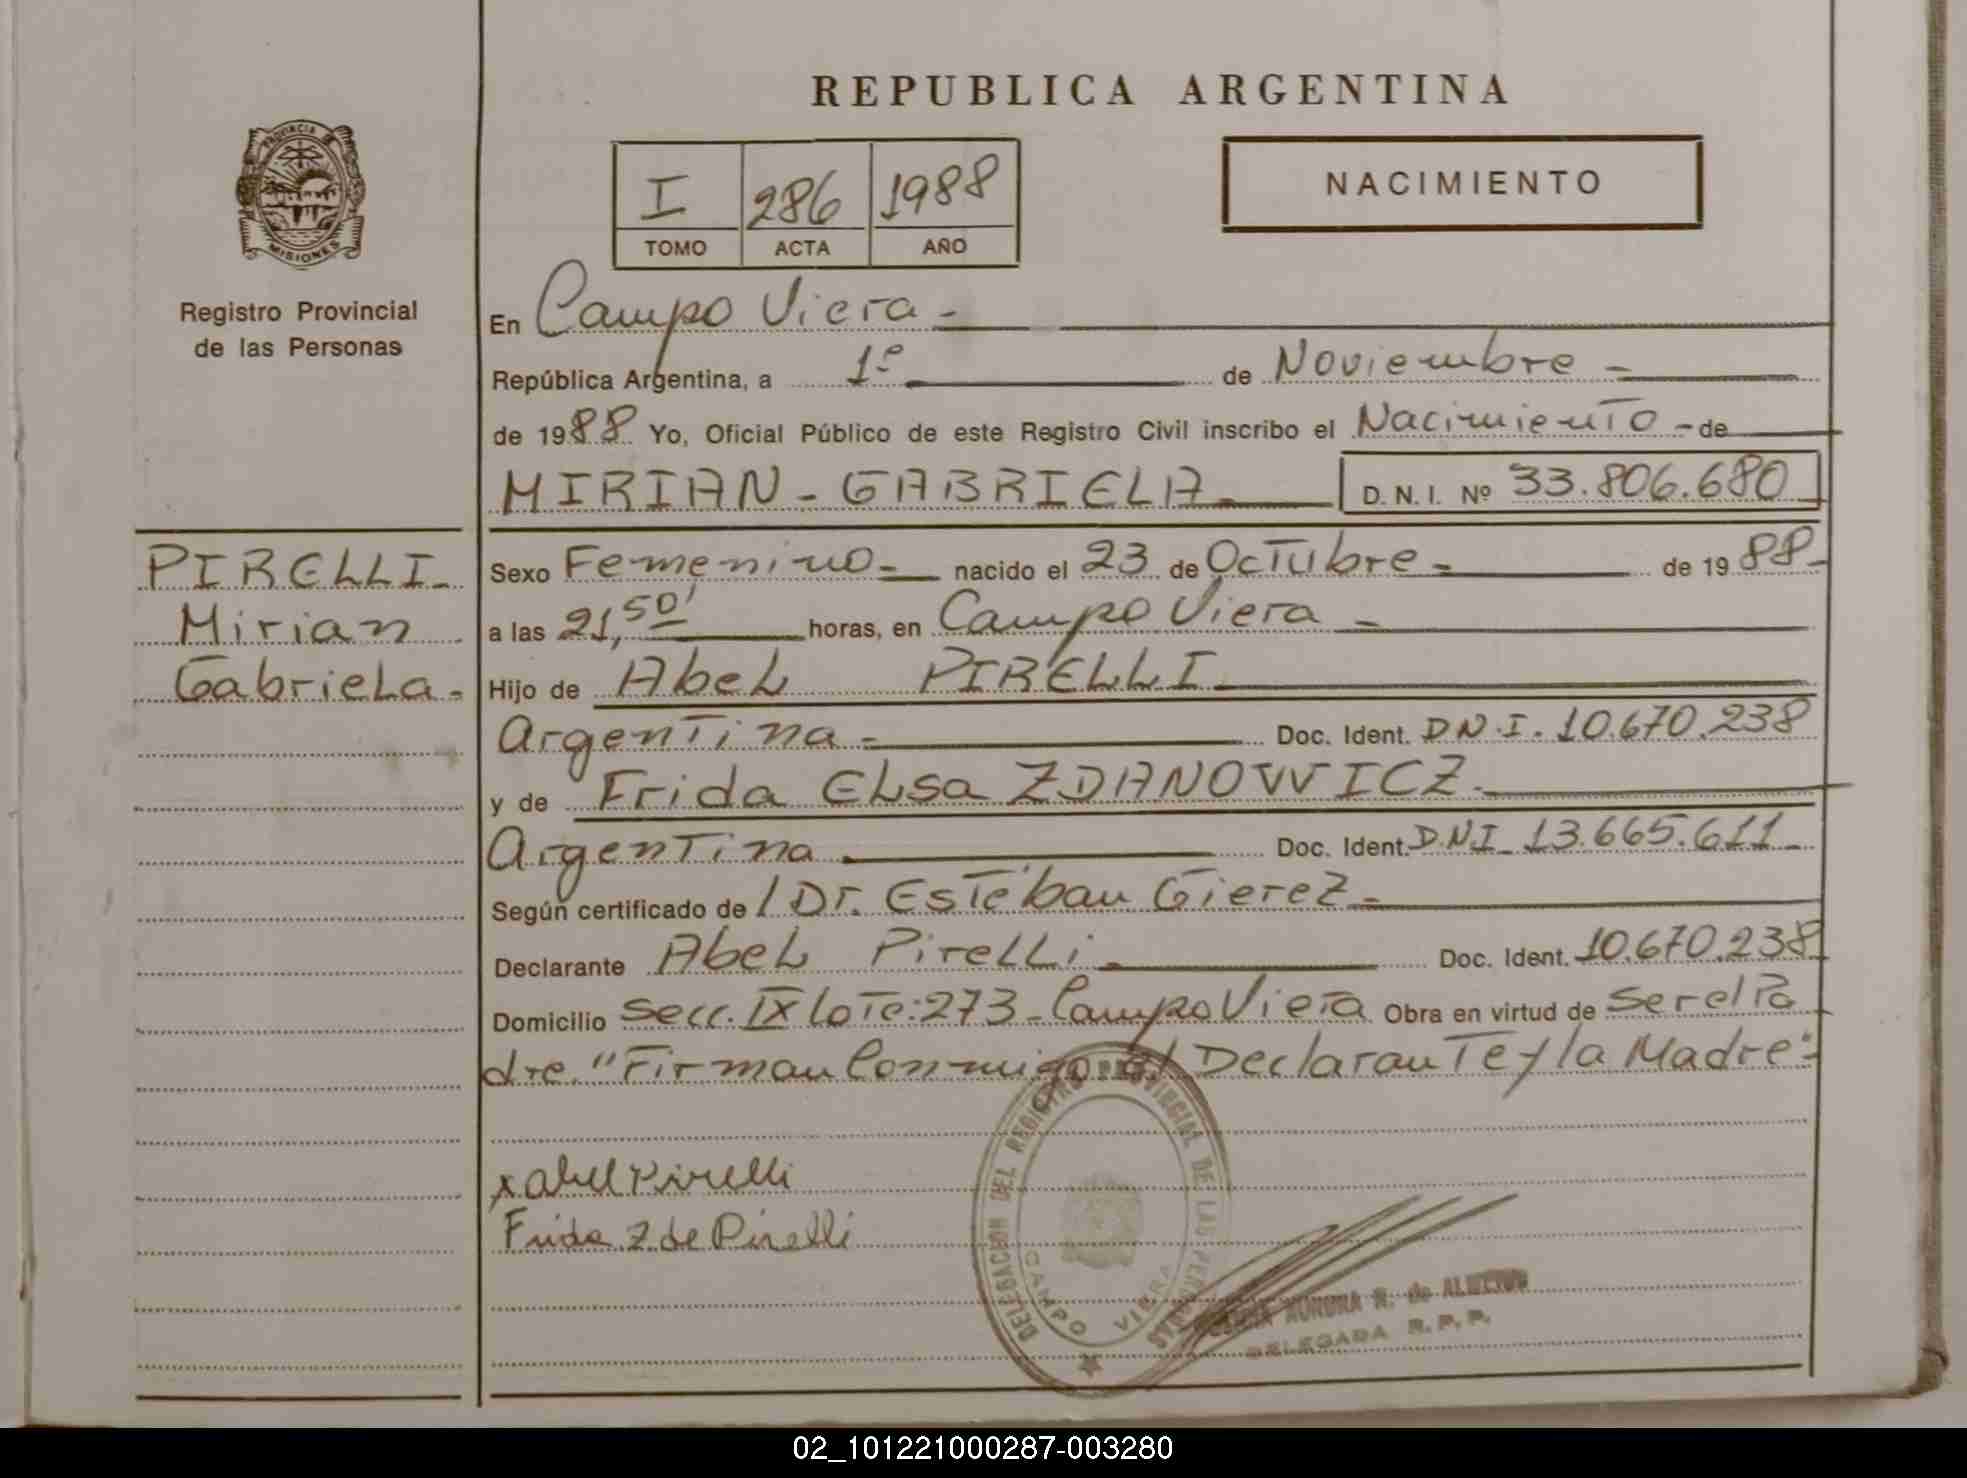 REPUBLICA ARGENTINA
PROVINCIA DE
MISIONES
Registro Provincial
de las Personas
I 286 1988
TOMO ACTA AÑO
NACIMIENTO
En Campo Viera -
República Argentina, a 1º de Noviembre -
de 1988 Yo, Oficial Público de este Registro Civil inscribo el Nacimiento - de
MIRIAN - GABRIELA D. N. I. Nº 33.806.680
PIRELLI -
Mirian
Gabriela -
Sexo Femenino - nacido el 23 de Octubre - de 1988 -
a las 21,50' horas, en Campo Viera -
Hijo de Abel PIRELLI
Argentina - Doc. Ident. D.N.I. 10.670.238
y de Frida Elsa ZDANOWICZ -
Argentina Doc. Ident. D.N.I. 13.665.611 -
Según certificado de / Dr. Esteban Gierez -
Declarante Abel Pirelli - Doc. Ident. 10.670.238
Domicilio Secc. IX Lote: 273 - Campo Viera Obra en virtud de ser el Pa
dre. "Firman Conmigo el Declarante y la Madre"
x Abel Pirelli
Frida Z de Pirelli
DELEGACION DEL REGISTRO PROVINCIAL DE LAS PERSONAS
CAMPO VIERA
AURORA R. de
DELEGADA R. P. P.
02_101221000287-003280